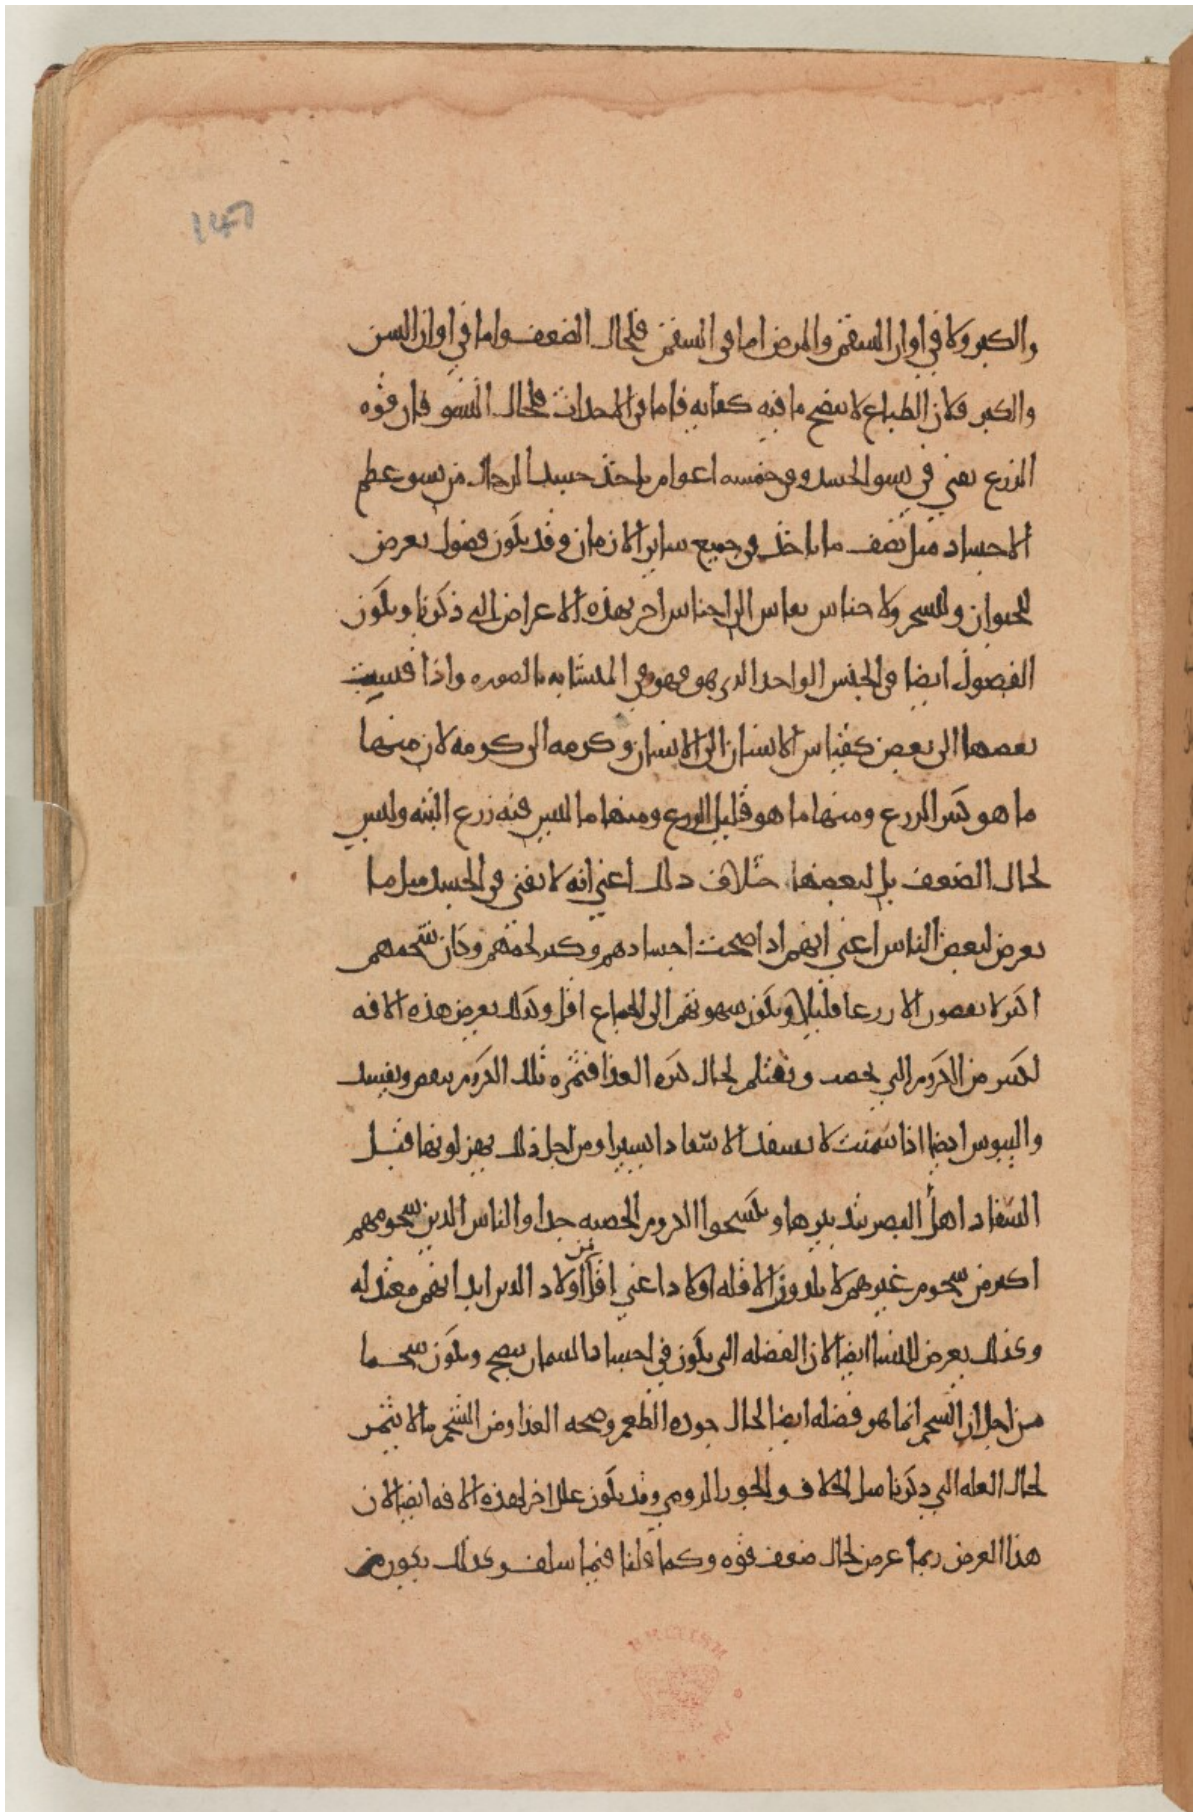 147
والكبر ولا في اوان السقم والمرض اما في السقم فلحال الضعف واما في اوان السن
والكبر فلان الطباع لا ينضج ما فيه كفايه فاما في الاحداث فلحال النشو فان قوه
الزرع تفنى في نشو الجسد وفي خمسه اعوام ياخذ جسد الرجال من نشو عظم
الاجساد مثل نصف ما ياخذ في جميع ساير الازمان وقد يكون فصول تعرض
للحيوان وللشجر ولاجناس تقاس الى اجناس اخر بهذه الاعراض التي ذكرنا ويكون
الفصول ايضا في الجنس الواحد الذي هو هو في المتشابه بالصوره واذا قيست
بعضها الى بعض كقياس الانسان الى الانسان وكرمه الى كرمه لان منها
ما هو كثير الزرع ومنها ما هو قليل الزرع ومنها ما ليس فيه زرع البته وليس
لحال الضعف بل لبعضها خلاف ذلك اعني انه لا تفنى في الجسد مثل ما
يعرض لبعض الناس اعني انهم اذا صحت اجسادهم وكثر لحمهم وكان شحمهم
اكثر لا يفضون الا زرعا قليلا ويكون شهوتهم الى الجماع اقل وكذلك يعرض هذه الافه
لكثير من الكروم التي تخصب وتغتلم لحال كثره الغذا فثمره تلك الكروم ينقص ويفسد
والتيوس ايضا اذا سمنت لا تسفد الا سفادا يسيرا ومن اجل ذلك يهزلونها قبل
السفاد اهل البصر بتدبيرها ويكسحوا الكروم الخصبه جدا والناس الذين شحومهم
اكثر من شحوم غيرهم لا يلدون الا قله اولادا اعني اقل من اولاد الذين ابدانهم معتدله
وكذلك يعرض للنسا ايضا لان الفضله التي يكون في اجساد السمان ينضج ويكون شحما
من اجل ان الشحم انما هو فضله ايضا لحال جوده الطعم وصحه الغذا ومن الشجر ما لا يثمر
لحال العله التي ذكرنا مثل الخلاف والحور الرومي وقد يكون علل اخر لهذه الافه ايضا لان
هذا العرض ربما عرض لحال ضعف قوه وكما قلنا فيما سلف وكذلك يكون من